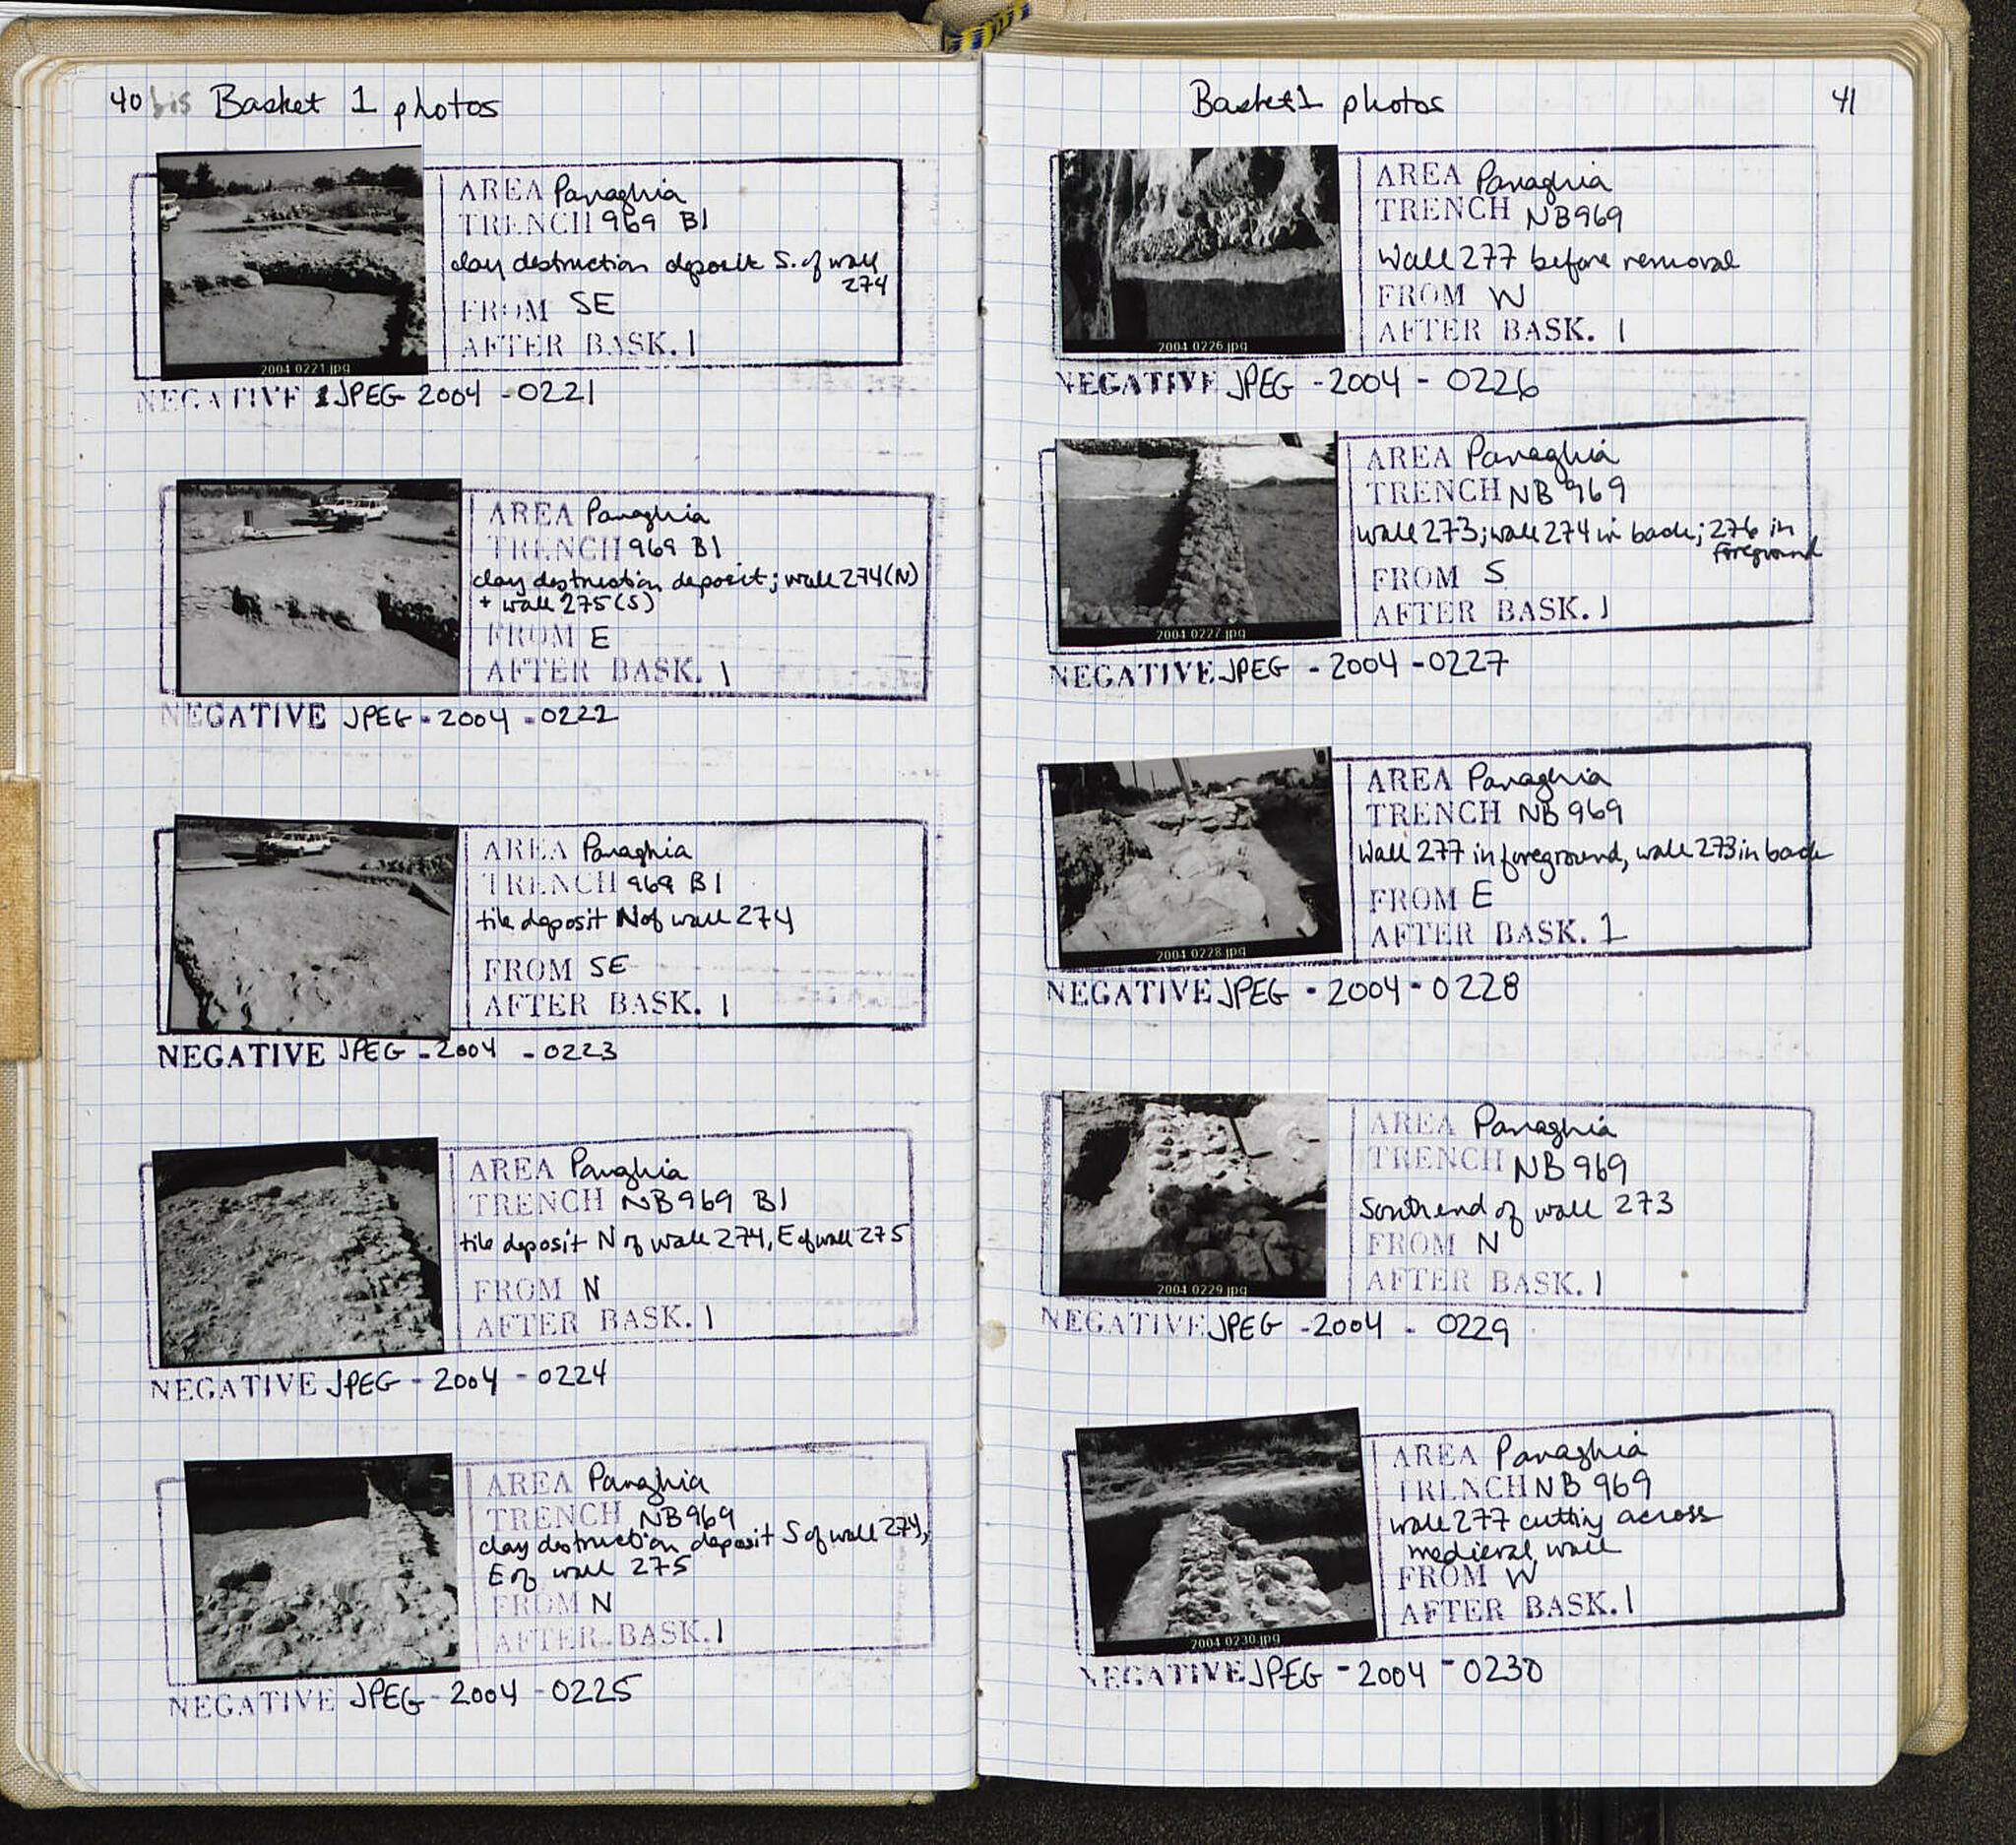 40 bis Basket 1 photos
2004 0221.jpg
AREA Panaghia
TRENCH 969 B1
clay destruction deposit S. of wall
274
FROM SE
AFTER BASK. 1
NEGATIVE JPEG 2004 - 0221
AREA Panaghia
TRENCH 969 B1
clay destruction deposit; wall 274(N)
+ wall 275(S)
FROM E
AFTER BASK. 1
NEGATIVE JPEG - 2004 - 0222
AREA Panaghia
TRENCH 969 B1
tile deposit N of wall 274
FROM SE
AFTER BASK. 1
NEGATIVE JPEG - 2004 - 0223
AREA Panghia
TRENCH NB969 B1
tile deposit N of wall 274, E of wall 275
FROM N
AFTER BASK. 1
NEGATIVE JPEG - 2004 - 0224
AREA Panaghia
TRENCH NB969
clay destruction deposit S of wall 274,
E of wall 275
FROM N
AFTER BASK. 1
NEGATIVE JPEG - 2004 - 0225
Basket 1 photos 41
2004 0226.jpg
AREA Panaghia
TRENCH NB969
Wall 277 before removal
FROM W
AFTER BASK. 1
NEGATIVE JPEG - 2004 - 0226
2004 0227.jpg
AREA Panaghia
TRENCH NB 969
wall 273; wall 274 in back; 276 in
foreground
FROM S
AFTER BASK. 1
NEGATIVE JPEG - 2004 - 0227
2004 0228.jpg
AREA Panaghia
TRENCH NB 969
Wall 277 in foreground, wall 273 in back
FROM E
AFTER BASK. 1
NEGATIVE JPEG - 2004 - 0228
2004 0229.jpg
AREA Panaghia
TRENCH NB 969
South end of wall 273
FROM N
AFTER BASK. 1
NEGATIVE JPEG - 2004 - 0229
2004 0230.jpg
AREA Panaghia
TRENCH NB 969
wall 277 cutting across
medieval wall
FROM W
AFTER BASK. 1
NEGATIVE JPEG - 2004 - 0230